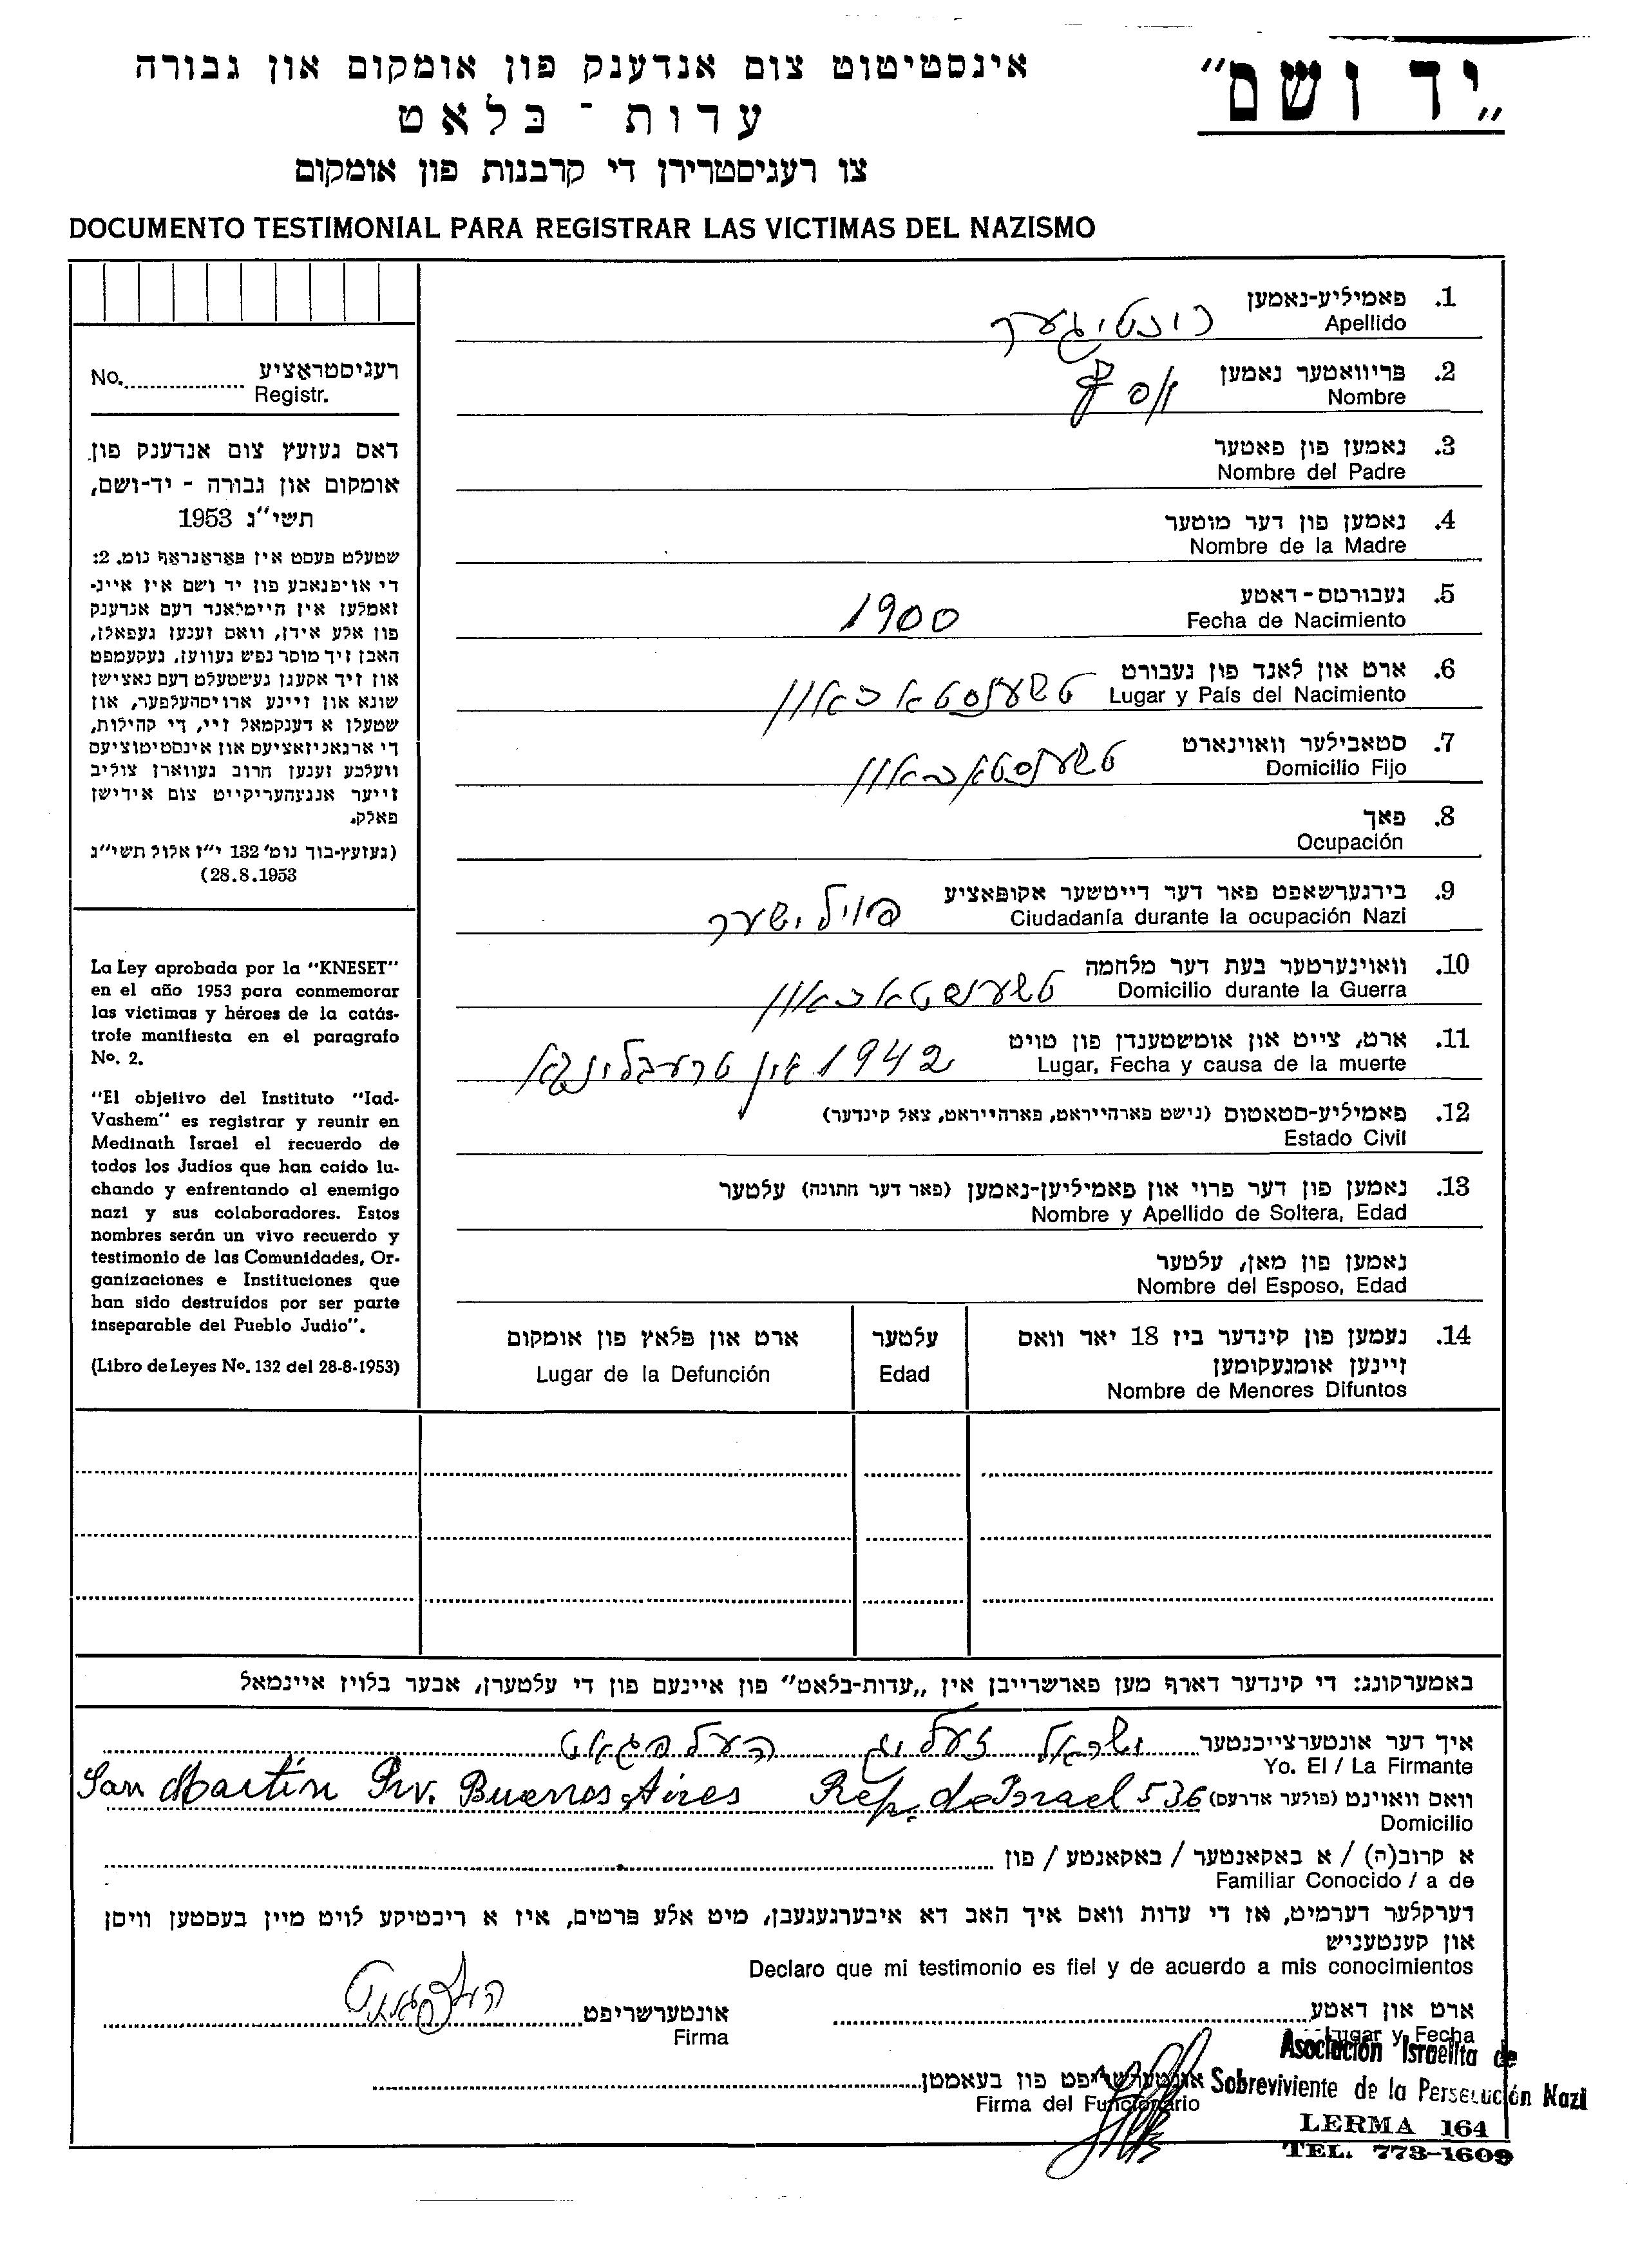 „יד ושם"
אינסטיטוט צום אנדענק פון אומקום און גבורה
עדות - בלאט
צו רעגיסטרירן די קרבנות פון אומקום
DOCUMENTO TESTIMONIAL PARA REGISTRAR LAS VICTIMAS DEL NAZISMO
רעגיסטראציע No.
Registr.
דאס געזעץ צום אנדענק פון
אומקום און גבורה - יד-ושם,
תשי"ג 1953
שטעלט פעסט אין פאראגראף נומ. 2:
די אויפגאבע פון יד ושם איז איינ-
זאמלען אין היימלאנד דעם אנדענק
פון אלע אידן, וואס זענען געפאלן,
האבן זיך מוסר נפש געווען, געקעמפט
און זיך אקעגן געשטעלט דעם נאצישן
שונא און זיינע ארויסהעלפער, און
שטעלן א דענקמאל זיי, די קהילות,
די ארגאניזאציעס און אינסטיטוציעס
וועלכע זענען חרוב געווארן צוליב
זייער אנגעהעריקייט צום אידישן
פאלק.
(געזעץ-בוך נומ' 132 י"ז אלול תשי"ג
28.8.1953)
La Ley aprobada por la "KNESET"
en el año 1953 para conmemorar
las victimas y héroes de la catás-
trofe manifiesta en el paragrafo
No. 2.
"El objetivo del Instituto "Iad-
Vashem" es registrar y reunir en
Medinath Israel el recuerdo de
todos los Judíos que han caido lu-
chando y enfrentando al enemigo
nazi y sus colaboradores. Estos
nombres serán un vivo recuerdo y
testimonio de las Comunidades, Or-
ganizaciones e Instituciones que
han sido destruídos por ser parte
inseparable del Pueblo Judio".
(Libro de Leyes No. 132 del 28-8-1953)
1. פאמיליע-נאמען
Apellido
2. פריוואטער נאמען
Nombre
3. נאמען פון פאטער
Nombre del Padre
4. נאמען פון דער מוטער
Nombre de la Madre
5. געבורטס-דאטע 1900
Fecha de Nacimiento
6. ארט און לאנד פון געבורט טשענסטאכאוו
Lugar y País del Nacimiento
7. סטאבילער וואוינארט טשענסטאכאוו
Domicilio Fijo
8. פאך
Ocupación
9. בירגערשאפט פאר דער דייטשער אקופאציע פוילישער
Ciudadanía durante la ocupación Nazi
10. וואוינערטער בעת דער מלחמה טשענסטאכאוו
Domicilio durante la Guerra
11. ארט, צייט און אומשטענדן פון טויט 1942 אין טרעבלינקא
Lugar, Fecha y causa de la muerte
12. פאמיליע-סטאטוס (נישט פארהייראט, פארהייראט, צאל קינדער)
Estado Civil
13. נאמען פון דער פרוי און פאמיליען-נאמען (פאר דער חתונה) עלטער
Nombre y Apellido de Soltera, Edad
נאמען פון מאן, עלטער
Nombre del Esposo, Edad
14. נעמען פון קינדער ביז 18 יאר וואס
זיינען אומגעקומען
Nombre de Menores Difuntos
עלטער
Edad
ארט און פלאץ פון אומקום
Lugar de la Defunción
באמערקונג: די קינדער דארף מען פארשרייבן אין „עדות-בלאט" פון איינעם פון די עלטערן, אבער בלויז איינמאל
איך דער אונטערצייכנטער ישראל זעליג העלפגאט
Yo. El / La Firmante
וואס וואוינט (פולער אדרעס) San Martín Prv. Buenos Aires Rep. de Israel 536
Domicilio
א קרוב(ה) / א באקאנטער / באקאנטע / פון
Familiar Conocido / a de
דערקלער דערמיט, אז די עדות וואס איך האב דא איבערגעגעבן, מיט אלע פרטים, איז א ריכטיקע לויט מיין בעסטען וויסן
און קענטעניש
Declaro que mi testimonio es fiel y de acuerdo a mis conocimientos
ארט און דאטע
Lugar y Fecha
אונטערשריפט
Firma
אונטערשריפט פון בעאמטן
Firma del Funcionario
Asociación Israelita de
Sobreviviente de la Persecución Nazi
LERMA 164
TEL. 773-1609